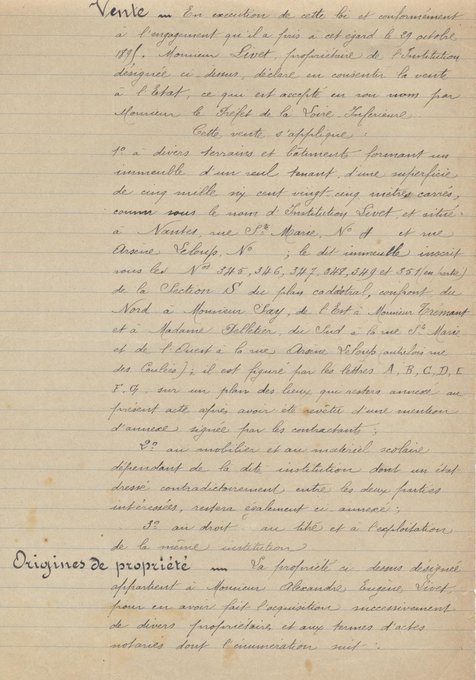 Vente — En execution de cette loi et conformément
à l'engagement qu'il a pris à cet égard le 29 octobre
1895. Monsieur Livet, propriétaire de l'Institution
désignée ci dessus, déclare en consentir la vente
à l'Etat, ce qui est accepté en son nom par
Monsieur le Préfet de la Loire Inférieure
Cette vente s'applique :
1º à divers terrains et bâtiments formant un
immeuble d'un seul tenant, d'une superficie
de cinq mille six cent vingt cinq mètres carrés,
connu sous le nom d'Institution Livet et situé
à Nantes, rue Ste Marie, No 1 et rue
Arsène Leloup, No ; le dit immeuble inscrit
sous les Nos 345, 346, 347, 348, 349 et 351 (en partie)
de la Section S du plan cadastral, confront du
Nord à Monsieur Say, de l'Est à Monsieur Tremant
et à Madame Pelletier, du Sud à la rue Ste Marie
et de l'Ouest à la rue Arsène Leloup autrefois rue
des Coulées) ; il est figuré par les lettres A, B, C, D, E
F, G, sur un plan des lieux qui restera annexé au
présent acte après avoir été revêtu d'une mention
d'annexe signée par les contractants ;
2º au mobilier et au matériel scolaire
dépendant de la dite institution dont un état
dressé contradictoirement entre les deux parties
intéressées, restera également ci annexé ;
3º au droit au titre et à l'exploitation
de la même institution
Origines de propriété — La propriété ci dessus désignée
appartient à Monsieur Alexandre Eugène Livet,
pour en avoir fait l'acquisition successivement
de divers propriétaires et aux termes d'actes
notariés dont l'énumération suit :